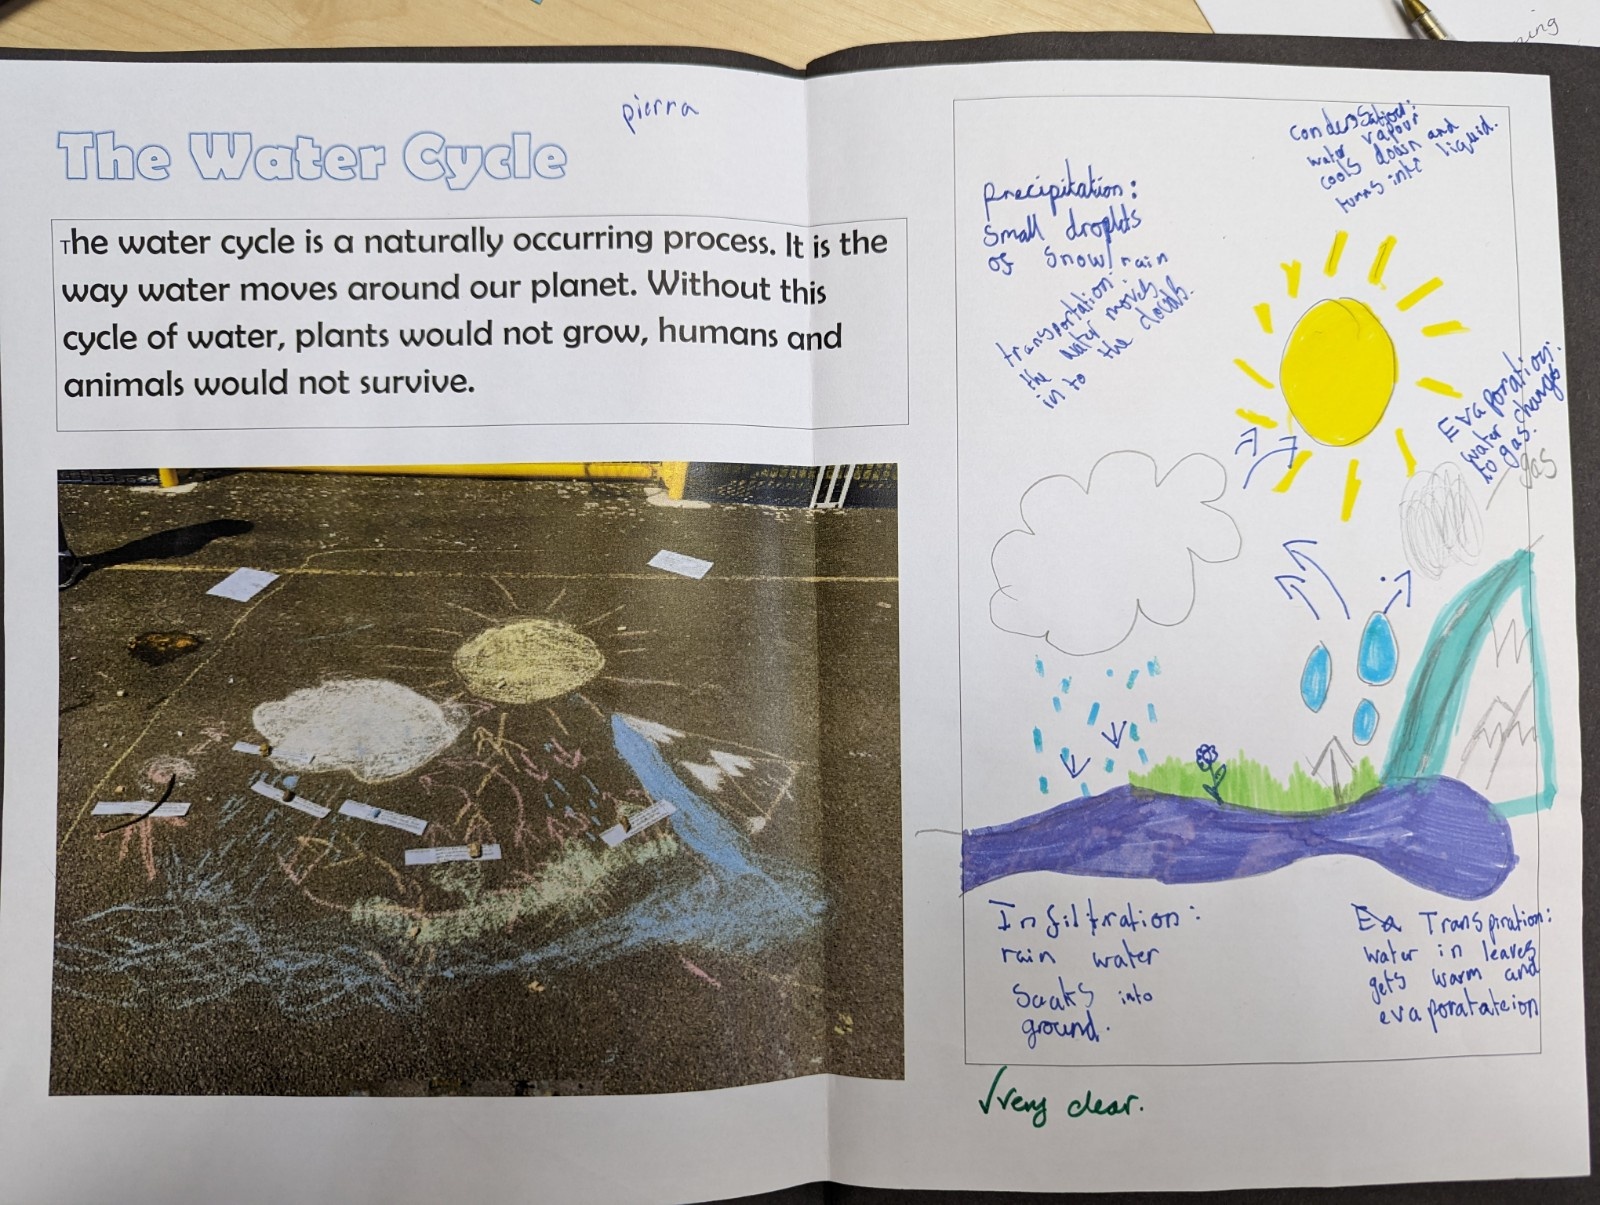 pierra
The Water Cycle
The water cycle is a naturally occurring process. It is the
way water moves around our planet. Without this
cycle of water, plants would not grow, humans and
animals would not survive.
precipitation:
Small droplets
of Snow/rain
transportation:
the water moves
in to the clouds.
water vapour
cools down and
turns into liquid.
Evaporation:
water changes
to gas.
gas
Infiltration:
rain water
Soaks into
ground.
Ea Transpiration:
water in leaves
gets warm and
evaporatateion
√ very clear.